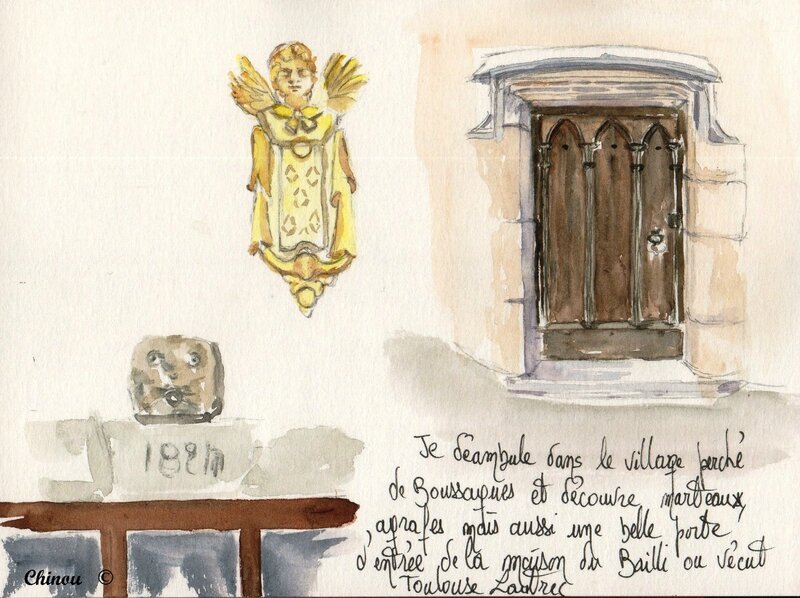 1824
Je déambule dans le village perché
de Boussagues et découvre marteaux,
agrafes mais aussi une belle porte
d'entrée de la maison du Bailli ou vécut
Toulouse Lautrec
Chinou ©